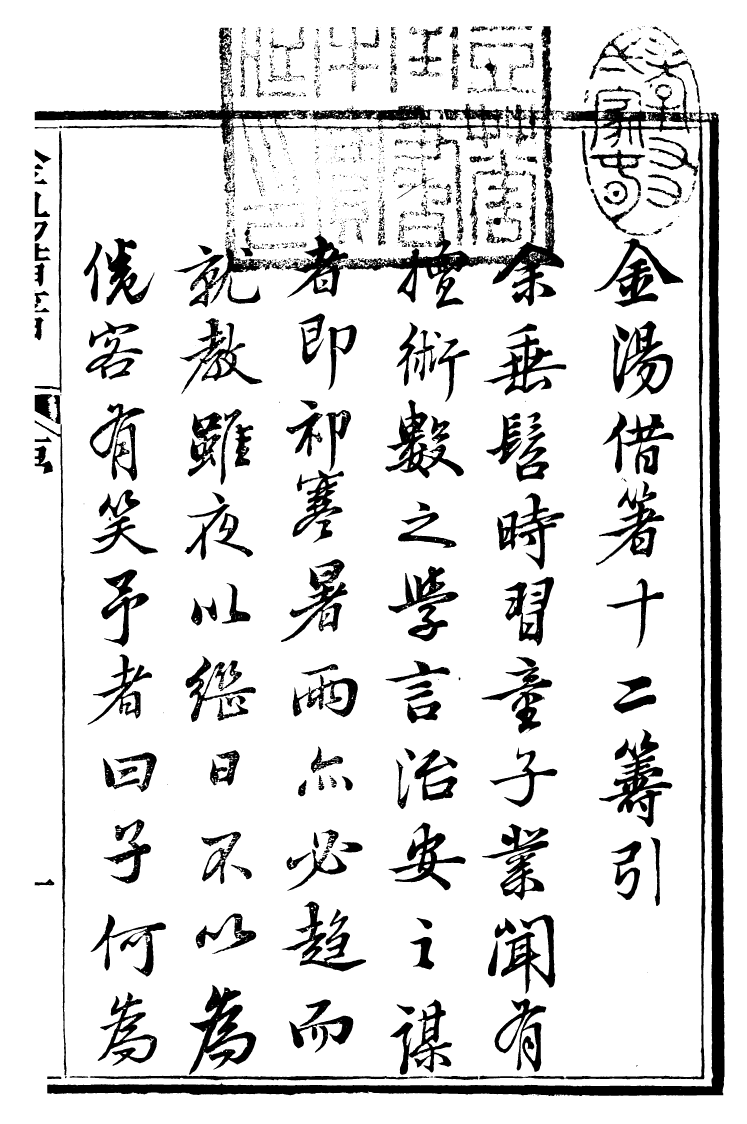 金湯借箸十二籌引
余垂髫時習童子業聞有
擅術數之學言治安之謀
者即祁寒暑雨亦必趨而
就教雖夜以繼日不以為
倦客有笑予者曰子何為
一